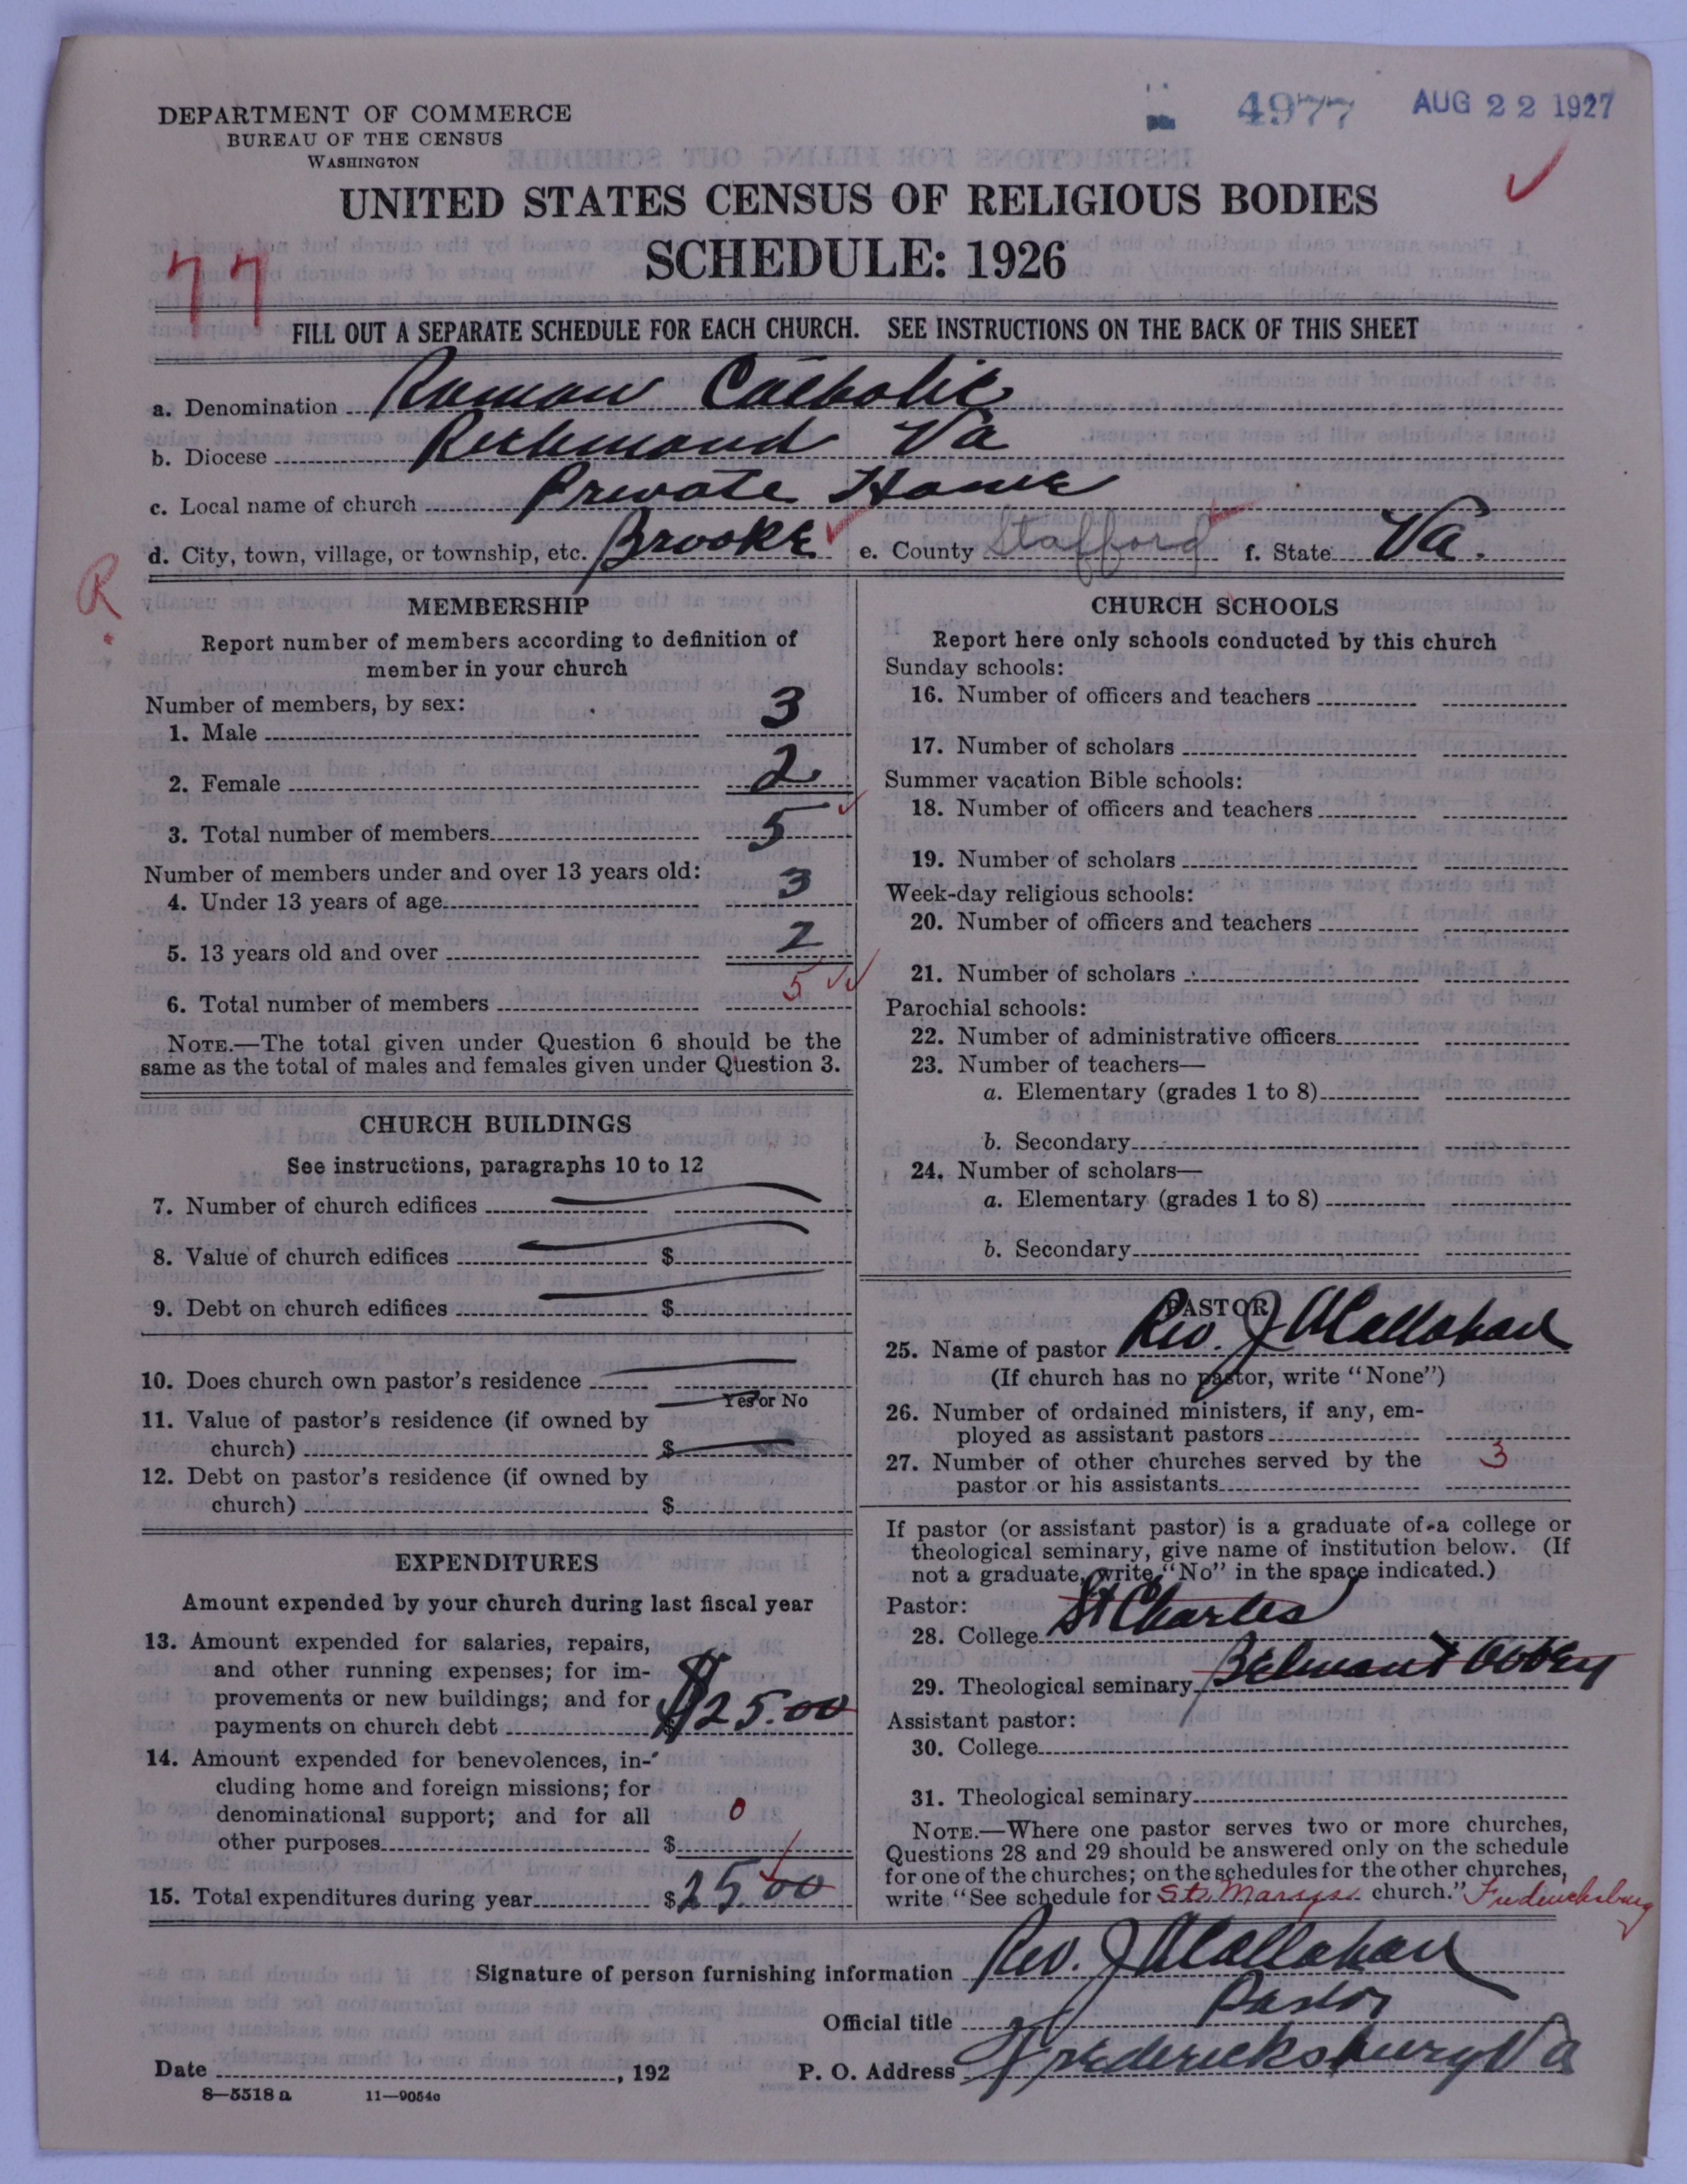 4977 AUG 22 1927
DEPARTMENT OF COMMERCE
BUREAU OF THE CENSUS
WASHINGTON
UNITED STATES CENSUS OF RELIGIOUS BODIES
SCHEDULE: 1926
77
FILL OUT A SEPARATE SCHEDULE FOR EACH CHURCH. SEE INSTRUCTIONS ON THE BACK OF THIS SHEET
a. Denomination Roman Catholic
b. Diocese Richmond Va
c. Local name of church Private Home
d. City, town, village, or township, etc. Brooke e. County Stafford f. State Va.
R
MEMBERSHIP
Report number of members according to definition of
member in your church
Number of members, by sex:
1. Male 3
2. Female 2
3. Total number of members 5
Number of members under and over 13 years old:
4. Under 13 years of age 3
5. 13 years old and over 2
6. Total number of members 5
NOTE.—The total given under Question 6 should be the
same as the total of males and females given under Question 3.
CHURCH BUILDINGS
See instructions, paragraphs 10 to 12
7. Number of church edifices
8. Value of church edifices $
9. Debt on church edifices $
10. Does church own pastor's residence
Yes or No
11. Value of pastor's residence (if owned by
church) $
12. Debt on pastor's residence (if owned by
church) $
EXPENDITURES
Amount expended by your church during last fiscal year
13. Amount expended for salaries, repairs,
and other running expenses; for im-
provements or new buildings; and for
payments on church debt $25.00
14. Amount expended for benevolences, in-
cluding home and foreign missions; for
denominational support; and for all
other purposes $ 0
15. Total expenditures during year $25.00
CHURCH SCHOOLS
Report here only schools conducted by this church
Sunday schools:
16. Number of officers and teachers
17. Number of scholars
Summer vacation Bible schools:
18. Number of officers and teachers
19. Number of scholars
Week-day religious schools:
20. Number of officers and teachers
21. Number of scholars
Parochial schools:
22. Number of administrative officers
23. Number of teachers—
a. Elementary (grades 1 to 8)
b. Secondary
24. Number of scholars—
a. Elementary (grades 1 to 8)
b. Secondary
PASTOR
25. Name of pastor Rev. J A Callahan
(If church has no pastor, write "None")
26. Number of ordained ministers, if any, em-
ployed as assistant pastors
27. Number of other churches served by the
pastor or his assistants 3
If pastor (or assistant pastor) is a graduate of a college or
theological seminary, give name of institution below. (If
not a graduate, write "No" in the space indicated.)
Pastor:
28. College St Charles
29. Theological seminary Belmont Abbey
Assistant pastor:
30. College
31. Theological seminary
NOTE.—Where one pastor serves two or more churches,
Questions 28 and 29 should be answered only on the schedule
for one of the churches; on the schedules for the other churches,
write "See schedule for St. Marys church." Fredericksburg
Signature of person furnishing information Rev. J A Callahan
Official title Pastor
Date , 192 P. O. Address Fredericksburg Va
8—5518 a 11—9054a